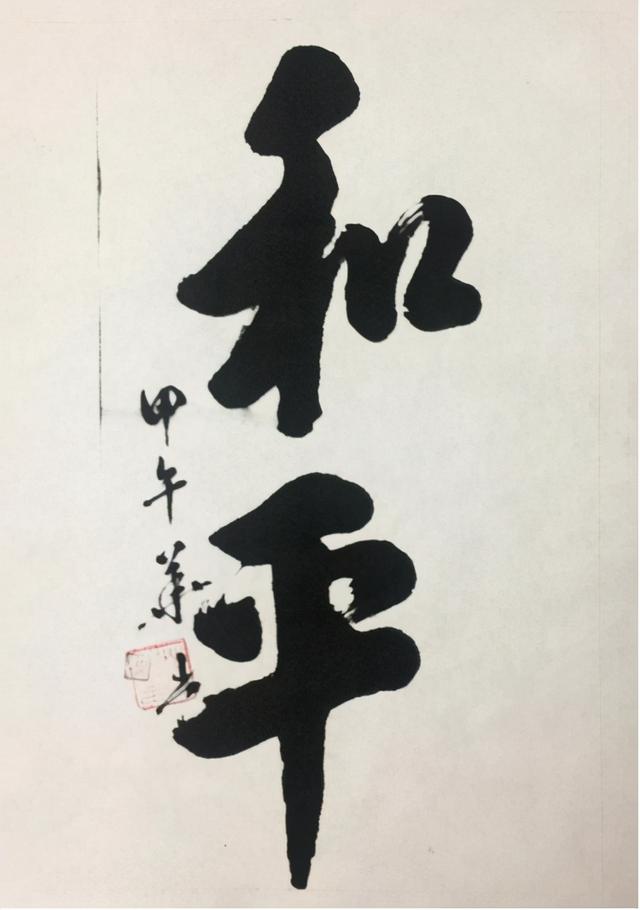 和平
甲午